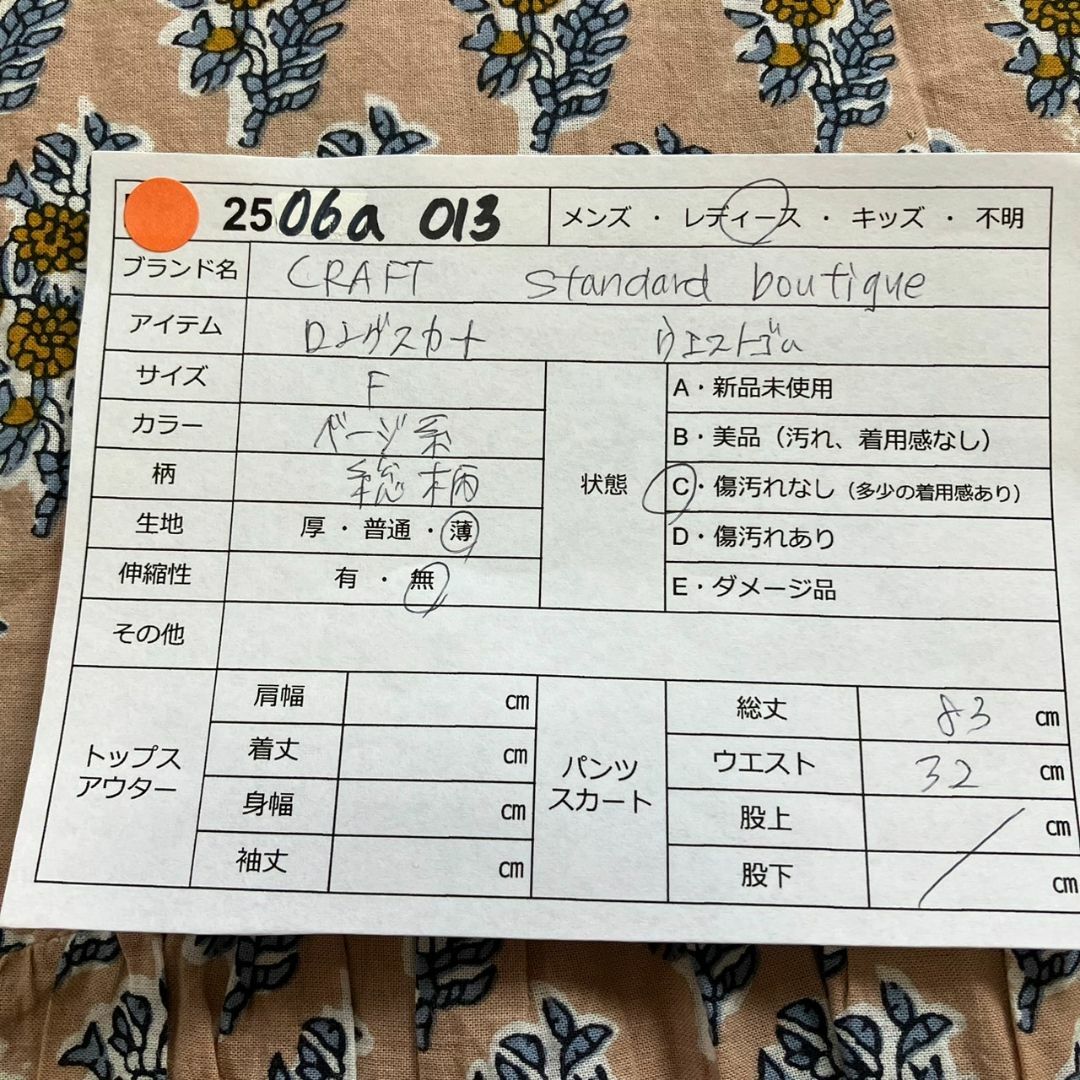 2506a 013 メンズ ・ レディース ・ キッズ ・ 不明
ブランド名 CRAFT standard boutique
アイテム ロングスカート ウエストゴム
サイズ F
カラー ベージ系
柄 総柄
生地 厚・普通・薄
伸縮性 有 ・ 無
状態
A・新品未使用
B・美品（汚れ、着用感なし）
C・傷汚れなし（多少の着用感あり）
D・傷汚れあり
E・ダメージ品
その他
トップス
アウター
肩幅 ㎝
着丈 ㎝
身幅 ㎝
袖丈 ㎝
パンツ
スカート
総丈 83 ㎝
ウエスト 32 ㎝
股上 ㎝
股下 ㎝